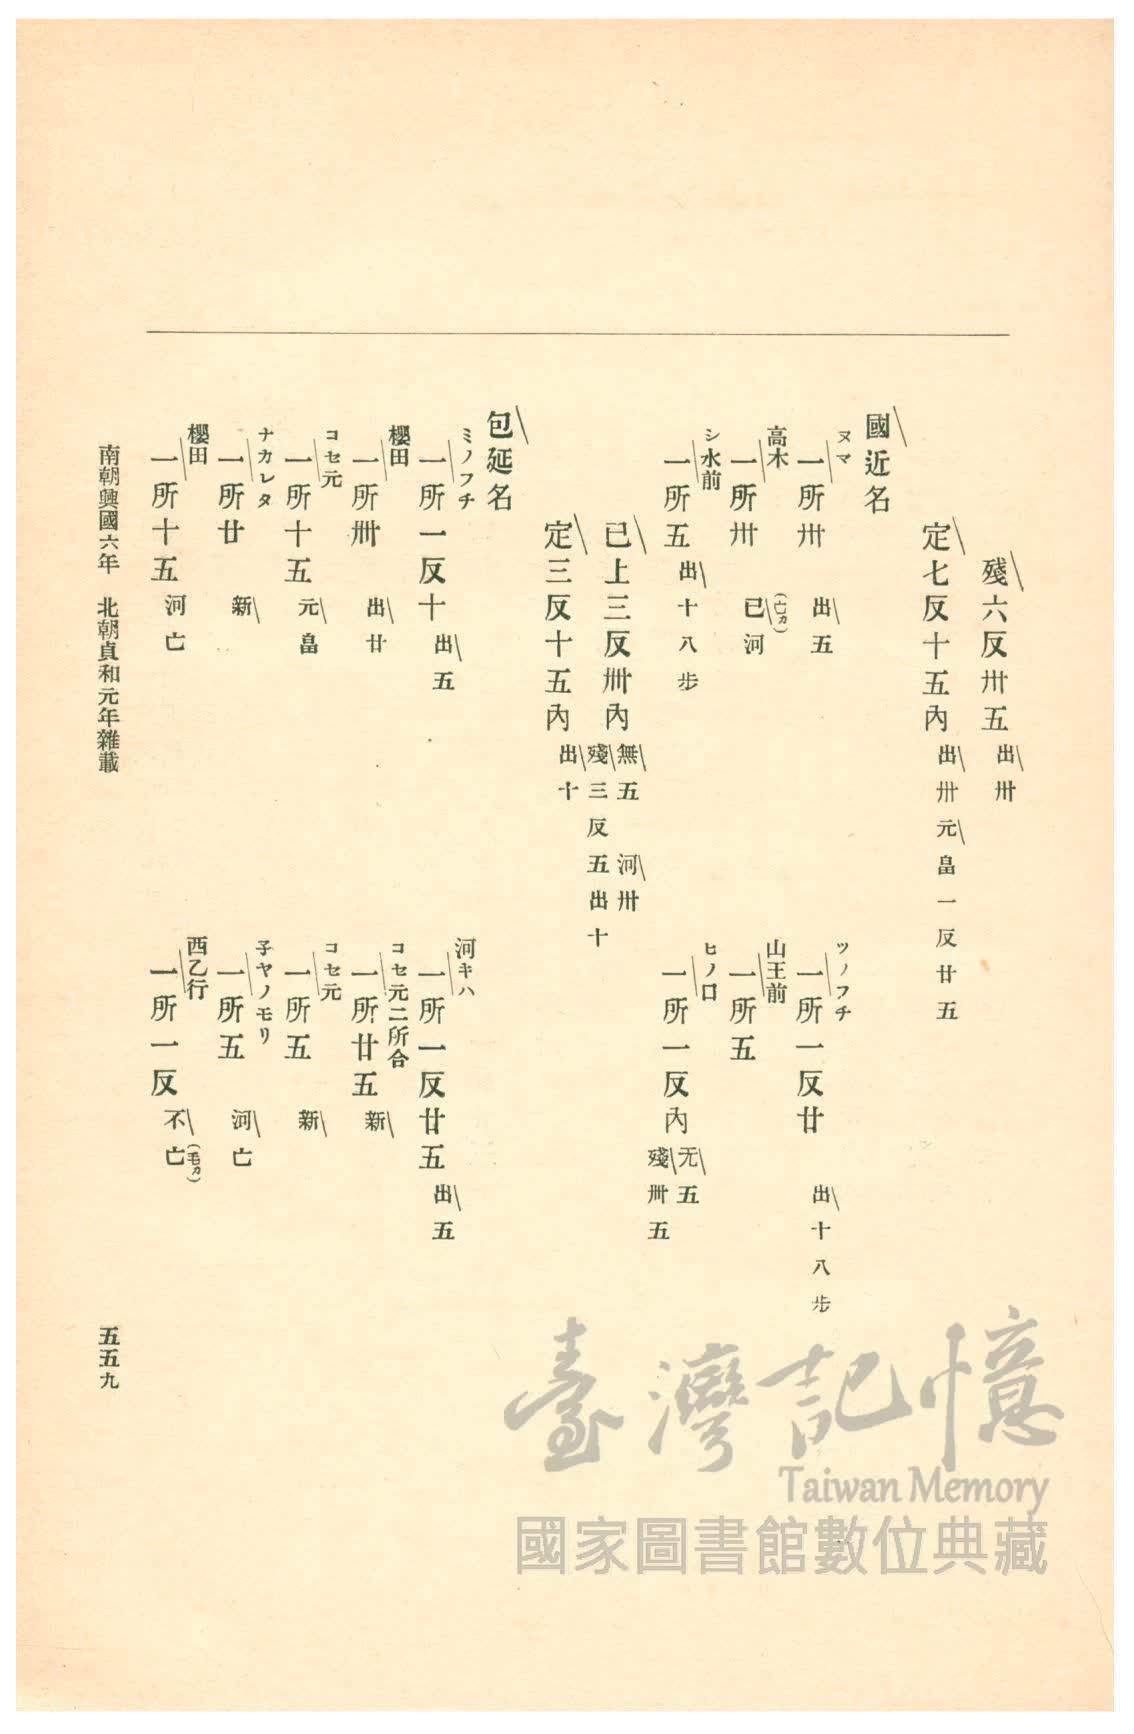 殘六反卅五　出卅
定七反十五內　出卅元畠一反廿五
國近名
ヌマ
一所卅　出五
ツノフチ
一所一反廿　出十八步
高木
一所卅　已(亡カ)河
山王前
一所五
シ水前
一所五　出十八步
ヒノ口
一所一反內　无五
殘卌五
已上三反卌內　無五　河卅
殘三反五出十
定三反十五內　出十
包延名
ミノフチ
一所一反十　出五
河キハ
一所一反廿五　出五
櫻田
一所卌　出廿
コセ元二所合
一所廿五　新
コセ元
一所十五　元畠
コセ元
一所五　新
ナカレタ
一所廿　新
子ヤノモリ
一所五　河亡
櫻田
一所十五　河亡
西乙行
一所一反　不亡(毛カ)
南朝興國六年　北朝貞和元年雜載
五五九
臺灣記憶
Taiwan Memory
國家圖書館數位典藏